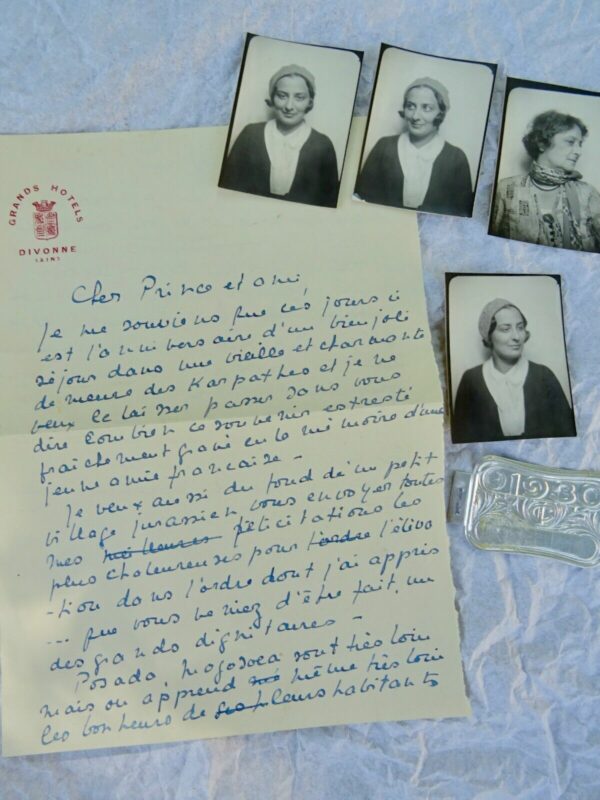 GRANDS HOTELS
DIVONNE
(AIN)
Cher Prince et ami,
Je me souviens que ces jours ci
est l'anniversaire d'un bien joli
séjour dans une vieille et charmante
demeure des Karpathes et je ne
veux le laisser passer sans vous
dire combien ce souvenir est resté
fraîchement gravé en le mémoire d'une
jeune amie française -
Je veux aussi du fond de un petit
village jurassien vous envoyer toutes
mes meilleures félicitations les
plus chaleureuses pour l'ordre l'éléva
-tion dans l'ordre dont j'ai appris
... que vous veniez d'être fait, un
des grands dignitaires -
Posada, Mogosoea sont très loin
mais on apprend même très loin
les bonheurs de leurs habitants
1930